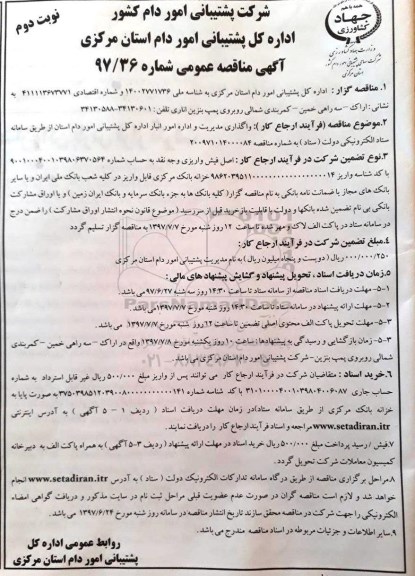 نوبت دوم
شرکت پشتیبانی امور دام کشور
اداره کل پشتیبانی امور دام استان مرکزی
آگهی مناقصه عمومی شماره ۹۷/۳۶
جهاد
کشاورزی
۱.مناقصه گزار : اداره کل پشتیبانی امور دام استان مرکزی به شناسه ملی ۱۴۰۰۲۷۷۱۷۳۶ و شماره اقتصادی ۴۱۱۱۱۳۶۷۳۷۷۱
نشانی : اراک – سه راهی خمین – کمربندی شمالی روبروی پمپ بنزین اناری تلفن : ۳۴۱۳۰۶۰۱-۳۴۱۳۰۵۸۸
۲.موضوع مناقصه (فرآیند ارجاع کار): واگذاری مدیریت و اداره امور انبار اداره کل پشتیبانی امور دام استان از طریق سامانه
ستاد الکترونیکی دولت (ستاد ) به شماره مناقصه
۳.نوع تضمین شرکت در فرآیند ارجاع کار : اصل فیش واریزی وجه نقد به حساب شماره
با کد شناسه واریز خزانه بانک مرکزی قابل واریز در کلیه شعب بانک ملی ایران و یا سایر
بانک های مجاز یا ضمانت نامه بانکی به نام مناقصه گزار( کلیه بانک ها به جزء بانک سرمایه و بانک ایران زمین ) و یا اوراق مشارکت
بانکی بی نام تضمین شده بانکها و دولت با قابلیت بازخرید قبل از سررسید ( موضوع قانون نحوه انتشار اوراق مشارکت ) را ضمن درج
در سامانه ستاد در پاکت الف لاک و مهر شده تا ساعت ۱۲ روز شنبه مورخ ۱۳۹۷/۷/۷ به مناقصه گزار تسلیم گردد
۴.مبلغ تضمین شرکت در فرآیند ارجاع کار:
۲۵۰/۰۰۰/۰۰۰ریال ( دویست و پنجاه میلیون ریال) به نام مدیریت پشتیبانی امور دام استان مرکزی
۵.زمان دریافت اسناد ، تحویل پیشنهاد و گشایش پیشنهاد های مالی :
۱-۵- مهلت دریافت اسناد مناقصه از سامانه ستاد تا ساعت ۱۴:۳۰ روز سه شنبه مورخ ۹۷/۶/۲۷ می باشد.
۲-۵- مهلت ارائه پیشنهاد در سامانه ستاد تا ساعت ۱۴:۳۰ روز شنبه مورخ ۱۳۹۷/۷/۷ می باشد.
۳-۵- مهلت تحویل پاکت الف محتوی اصلی تضمین تا ساعت ۱۲ روز شنبه مورخ ۱۳۹۷/۷/۷ می باشد .
۳-۵- زمان بازگشایی و رسیدگی به پیشنهادها : ساعت ۱۰ روز یکشنبه مورخ ۱۳۹۷/۷/۸ واقع در اراک – سه راهی خمین – کمربندی
شمالی روبروی پمپ بنزین - شرکت پشتیبانی امور دام استان مرکزی می باشد.
۶.خرید اسناد : متقاضیان شرکت در فرآیند ارجاع کار می توانند پس از واریز مبلغ ۵۰۰/۰۰۰ ریال غیر قابل استرداد به شماره
حساب جاری با کد شناسه شماره به صورت پایا به
خزانه بانک مرکزی از طریق سامانه ستاد،در زمان مهلت دریافت اسناد ( ردیف ۱-۵ آگهی ) به آدرس اینترنتی
www.setadiran.ir مراجعه و اسناد فرآیند ارجاع کار را دریافت نمایند.
۷.فیش / رسید پرداخت مبلغ ۵۰۰/۰۰۰ ریال خرید اسناد در مهلت ارائه پیشنهاد ( ردیف ۳-۵ آگهی ) به همراه پاکت الف به دبیرخانه
کمیسیون معاملات شرکت تحویل گردد.
۸.مراحل برگزاری مناقصه از طریق درگاه سامانه تدارکات الکترونیک دولت ( ستاد ) به آدرس www.setadiran.ir انجام
خواهد شد و لازم است مناقصه گران در صورت عدم عضویت قبلی مراحل ثبت نام در سایت مذکور و دریافت گواهی امضاء
الکترونیکی را جهت شرکت در مناقصه محقق سازند تاریخ انتشار مناقصه در سامانه روز شنبه مورخ ۱۳۹۷/۶/۲۴ می باشد.
۹.سایر اطلاعات و جزئیات مربوطه در اسناد مناقصه مندرج می باشد.
روابط عمومی اداره کل
پشتیبانی امور دام استان مرکزی